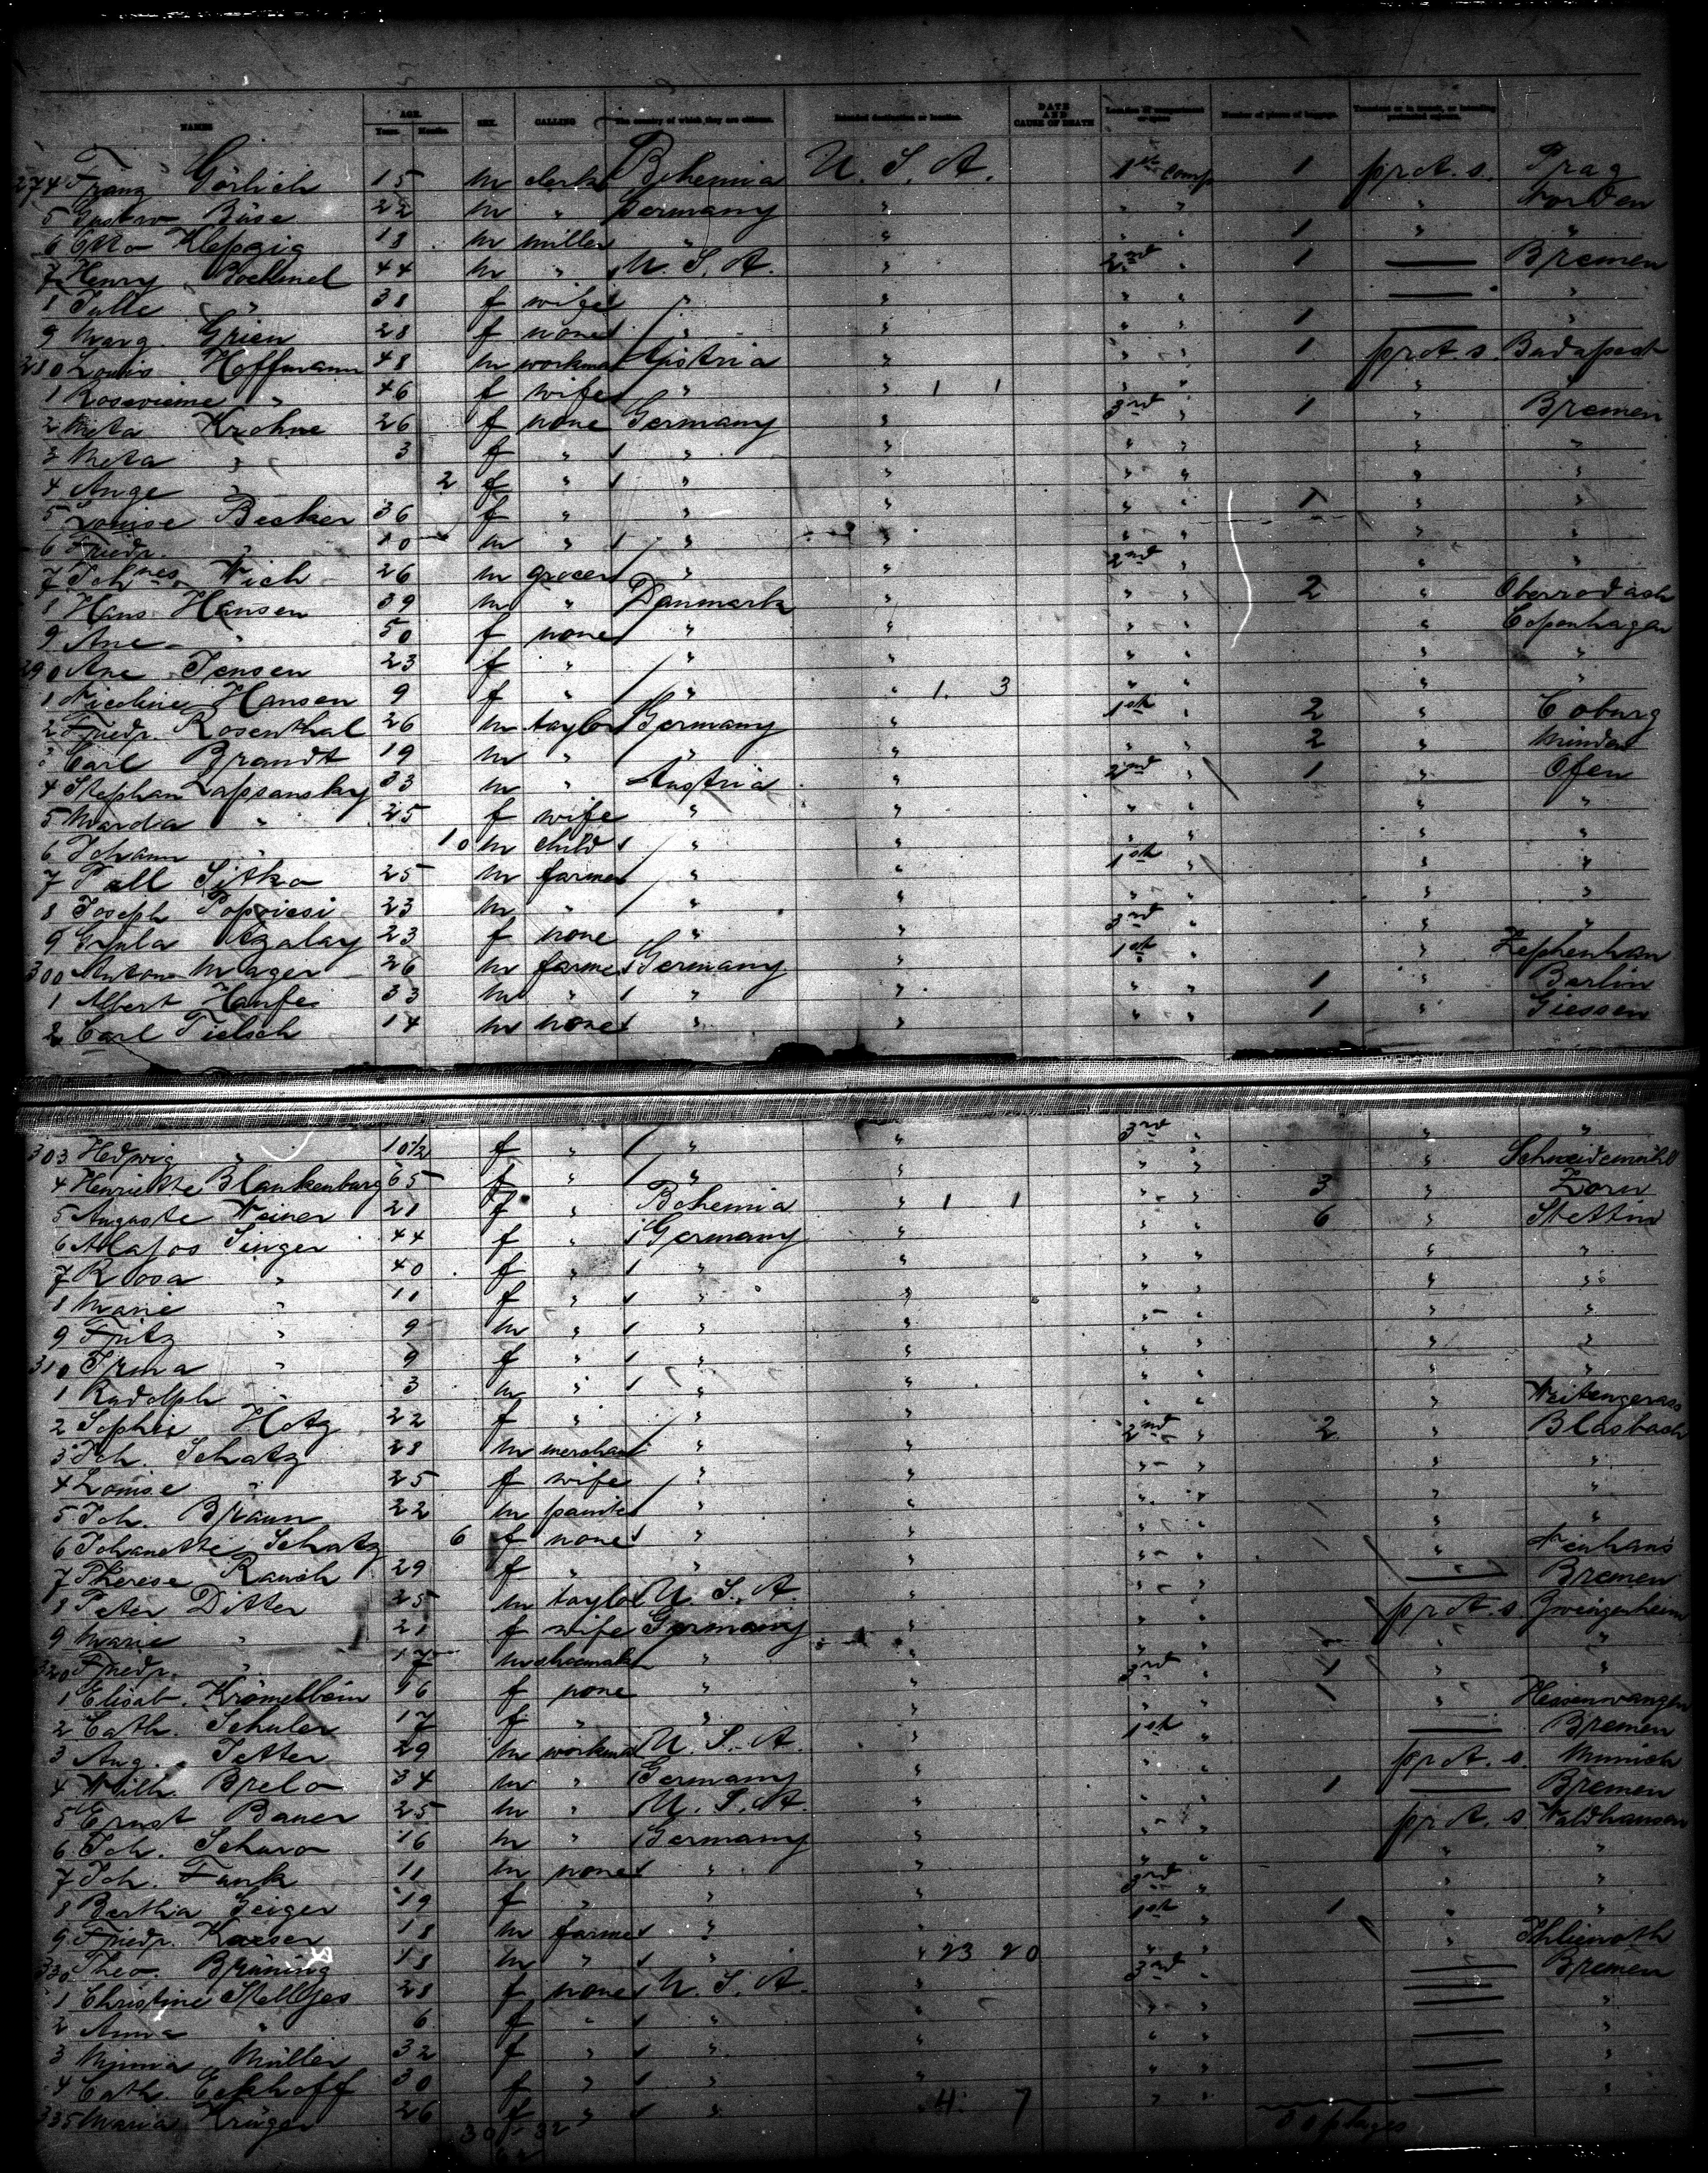 NAMES AGE. Years. Months. SEX. CALLING The country of which they are citizens. Intended destination or location. DATE AND CAUSE OF DEATH Location of compartment or space Number of pieces of baggage. Transient or in transit, or intending protracted sojourn.
274 Franz Görlich 15 m clerk Bohemia U. S. A. 1st Comp 1 prot. s. Prag
5 Gustav Büse 22 m " Germany " " " " Norden
6 Otto Klepzig 18 m miller " " " " 1 " "
7 Henry 44 m " U. S. A. " 2nd " 1 — Bremen
8 38 f wife " " " " — "
9 Marg. Grien 28 f none " " " " 1 — "
280 Louis Hoffmann 48 m workman Austria " " " 1 prot. s. Budapest
1 " 46 f wife " " 1 1 " " "
2 Meta Krohne 26 f none Germany " 3rd " 1 " Bremen
3 Meta " 3 f " " " " " " "
4 Ange " 2 f " " " " " " "
5 Louise Becker 36 f " " " " " 1 " "
6 Friedr. " 10 m " " " " " "
7 Johnes Wich 26 m grocer " " 2nd " "
8 Hans Hansen 39 m " Danmark " " " 2 " Oberrodach
9 Ane " 50 f none " " " " " Copenhagen
290 Ane Jensen 23 f " " " " " " "
1 Nicoline Hansen 9 f " " " 1 3 " " " "
2 Friedr. Rosenthal 26 m taylor Germany " 1st " 2 " Coburg
3 Carl Brandt 19 m " " " " " 2 " Minden
4 Stephan Zapsansky 33 m " Austria " 2nd " 1 " Ofen
5 " 25 f wife " " " " " "
6 Johann " 10 m child " " " " " "
7 Pall Sitka 25 m farmer " " 1st " " "
8 Joseph 23 m " " " " " " "
9 23 f none " " 3rd " " "
300 Anton Mager 26 m farmer Germany " 1st " "
1 Albert Hanfe 33 m " " " " " 1 " Berlin
2 Carl Tietsch 14 m none " " " " 1 " Giessen
303 Hedwig " 10½ f " " " 3rd " " "
4 Henriette Blankenburg 65 f " " " " " " Schneidemühl
5 Auguste Weiner 21 f " Bohemia " 1 1 " " 3 " Zorn
6 Alajos Singer 44 f " Germany " " " 6 " Stettin
7 Rosa " 40 f " " " " " " "
8 Marie " 11 f " " " " "
9 Fritz " 9 m " " " " " " "
310 Irma " 9 f " " " " " " "
1 Rudolph " 3 m " " " " " " "
2 Sophie Hotz 22 f " " " " " "
3 Joh. Schatz 28 m merchant " " 2nd " 2 " Blasbach
4 Louise " 25 f wife " " " " " "
5 Joh. Braun 22 m painter " " " " " "
6 Johanette Schatz 6 f none " " " "
7 Therese Rauch 29 f " " " " " "
8 Peter Ditter 25 m taylor U. S. A. " " " — Bremen
9 Marie " 21 f wife Germany " " " prot. s. Zwingenheim
320 Friedr. " 17 m shoemaker " " " " "
1 Elisab. Krömelbein 16 f none " " 3rd " 1 " "
2 Cath. Schuler 17 f " " " " " 1 "
3 Aug. Jetter 29 m workman U. S. A. " 1st " — Bremen
4 Wilh. Brelo 34 m " Germany " " " prot. s. Munich
5 Ernst Bauer 25 m " U. S. A. " " " 1 — Bremen
6 Joh. 16 m " Germany " " " prot. s. Waldhausen
7 Joh. Funk 11 m none " " " " " "
8 Bertha Geiger 19 f " " " 3rd " " "
9 Friedr. Kaeser 18 m farmer " " 1st " 1 " "
330 Theo. Brüning 18 m " " " 23 20 " " "
1 Christine Stelljes 28 f none U. S. A. " 3rd " — Bremen
2 Anna " 6 f " " " " " — "
3 Minna Müller 32 f " " " " " — "
4 Cath. Eckhoff 30 f " " " " " — "
335 Maria Krüger 26 f " " " 4. 7 " " — "
30 32